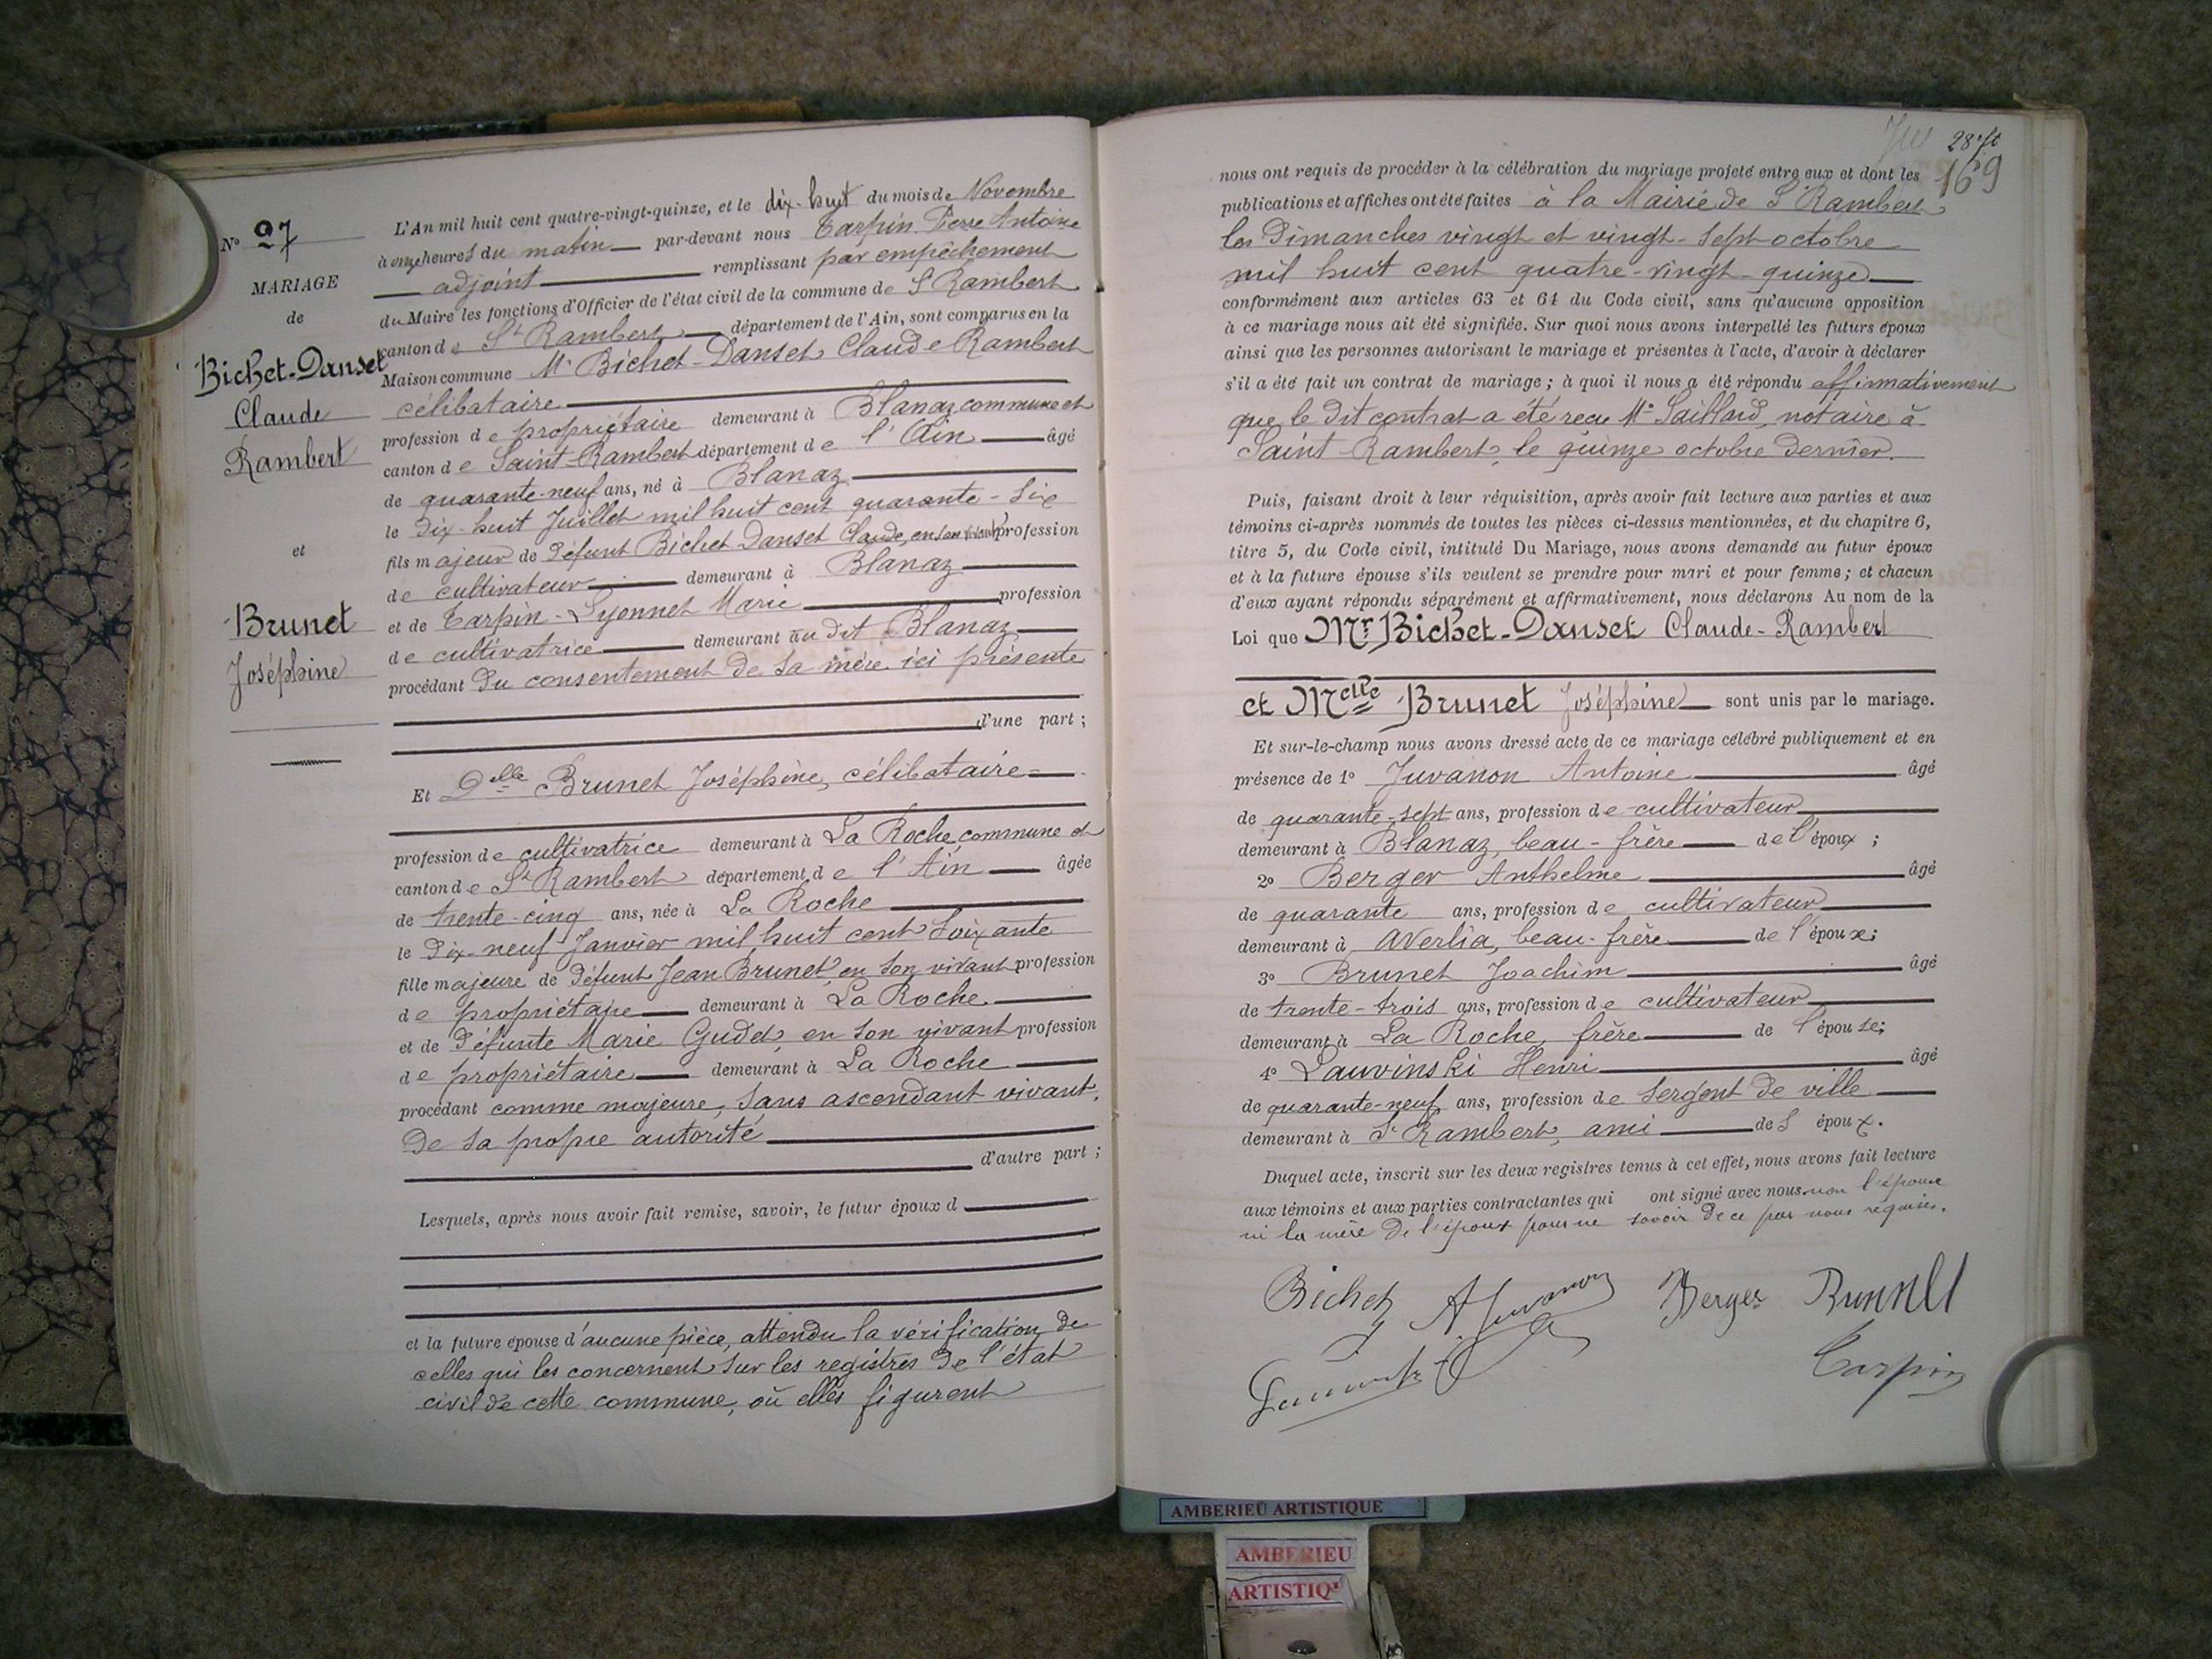 N° 27
MARIAGE
de
Bichet-Danset
Claude
Rambert
et
Brunet
Joséphine
L'An mil huit cent quatre-vingt-quinze, et le dix-huit du mois de Novembre
à onze heures du matin par-devant nous Tarpin Pierre Antoine
adjoint remplissant par empêchement
du Maire les fonctions d'Officier de l'état civil de la commune de St Rambert
canton de St Rambert département de l'Ain, sont comparus en la
Maison commune Mr Bichet-Danset Claude Rambert
célibataire
profession de propriétaire demeurant à Blanaz commune et
canton de Saint-Rambert département de l'Ain âgé
de quarante-neuf ans, né à Blanaz
le dix-huit Juillet mil huit cent quarante-six
fils majeur de défunt Bichet Danset Claude, en son vivant profession
de cultivateur demeurant à Blanaz
et de Tarpin-Lyonnet Marie profession
de cultivatrice demeurant au dit Blanaz
procédant du consentement de sa mère ici présente
d'une part ;
Et Delle Brunet Joséphine, célibataire
profession de cultivatrice demeurant à La Roche commune et
canton de St Rambert département de l'Ain âgée
de trente-cinq ans, née à La Roche
le dix-neuf Janvier mil huit cent soixante
fille majeure de défunt Jean Brunet en son vivant profession
de propriétaire demeurant à La Roche
et de défunte Marie Gudet, en son vivant profession
de propriétaire demeurant à La Roche
procédant comme majeure, sans ascendant vivant,
de sa propre autorité
d'autre part ;
Lesquels, après nous avoir fait remise, savoir, le futur époux d
et la future épouse d'aucune pièce, attendu la vérification de
celles qui les concernent sur les registres de l'état
civil de cette commune, où elles figurent
28
169
nous ont requis de procéder à la célébration du mariage projeté entre eux et dont les
publications et affiches ont été faites à la Mairie de St Rambert
les Dimanches vingt et vingt-sept octobre
mil huit cent quatre-vingt-quinze
conformément aux articles 63 et 64 du Code civil, sans qu'aucune opposition
à ce mariage nous ait été signifiée. Sur quoi nous avons interpellé les futurs époux
ainsi que les personnes autorisant le mariage et présentes à l'acte, d'avoir à déclarer
s'il a été fait un contrat de mariage ; à quoi il nous a été répondu affirmativement
que le dit contrat a été reçu Me Saillard, notaire à
Saint-Rambert, le quinze octobre dernier.
Puis, faisant droit à leur réquisition, après avoir fait lecture aux parties et aux
témoins ci-après nommés de toutes les pièces ci-dessus mentionnées, et du chapitre 6,
titre 5, du Code civil, intitulé Du Mariage, nous avons demandé au futur époux
et à la future épouse s'ils veulent se prendre pour mari et pour femme ; et chacun
d'eux ayant répondu séparément et affirmativement, nous déclarons Au nom de la
Loi que Mr Bichet-Danset Claude-Rambert
et Melle Brunet Joséphine sont unis par le mariage.
Et sur-le-champ nous avons dressé acte de ce mariage célébré publiquement et en
présence de 1° Juvanon Antoine âgé
de quarante-sept ans, profession de cultivateur
demeurant à Blanaz, beau-frère de l'époux ;
2° Berger Anthelme âgé
de quarante ans, profession de cultivateur
demeurant à Averlia, beau-frère de l'époux ;
3° Brunet Joachim âgé
de trente-trois ans, profession de cultivateur
demeurant à La Roche, frère de l'épouse ;
4° Lauvinski Henri âgé
de quarante-neuf ans, profession de sergent de ville
demeurant à St Rambert, ami des époux.
Duquel acte, inscrit sur les deux registres tenus à cet effet, nous avons fait lecture
aux témoins et aux parties contractantes qui ont signé avec nous non l'épouse
ni la mère de l'époux pour ne savoir de ce par nous requises.
Bichet A Juvanon Berger Brunet
Tarpin
AMBERIEU ARTISTIQUE
AMBERIEU
ARTISTIQ